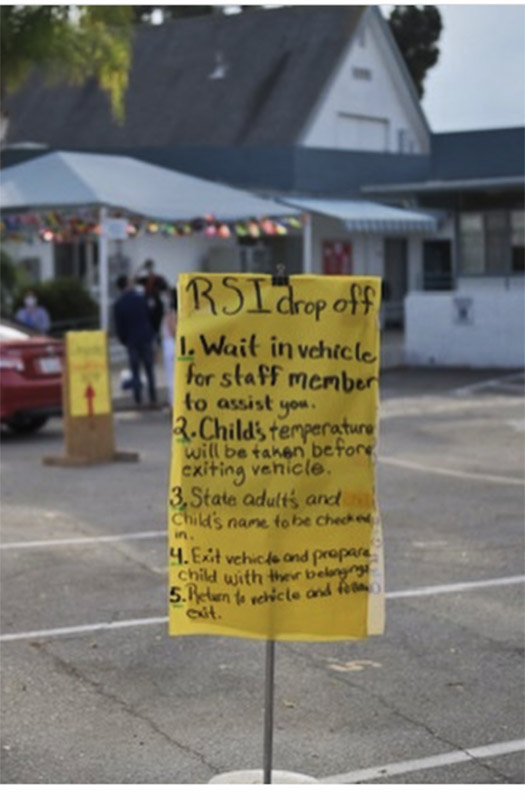 RSI drop off
1. Wait in vehicle
for staff member
to assist you.
2. Child's temperature
will be taken before
exiting vehicle.
3. State adult's and
child's name to be checked
in.
4. Exit vehicle and prepare
child with their belongings
5. Return to vehicle and follow
exit.